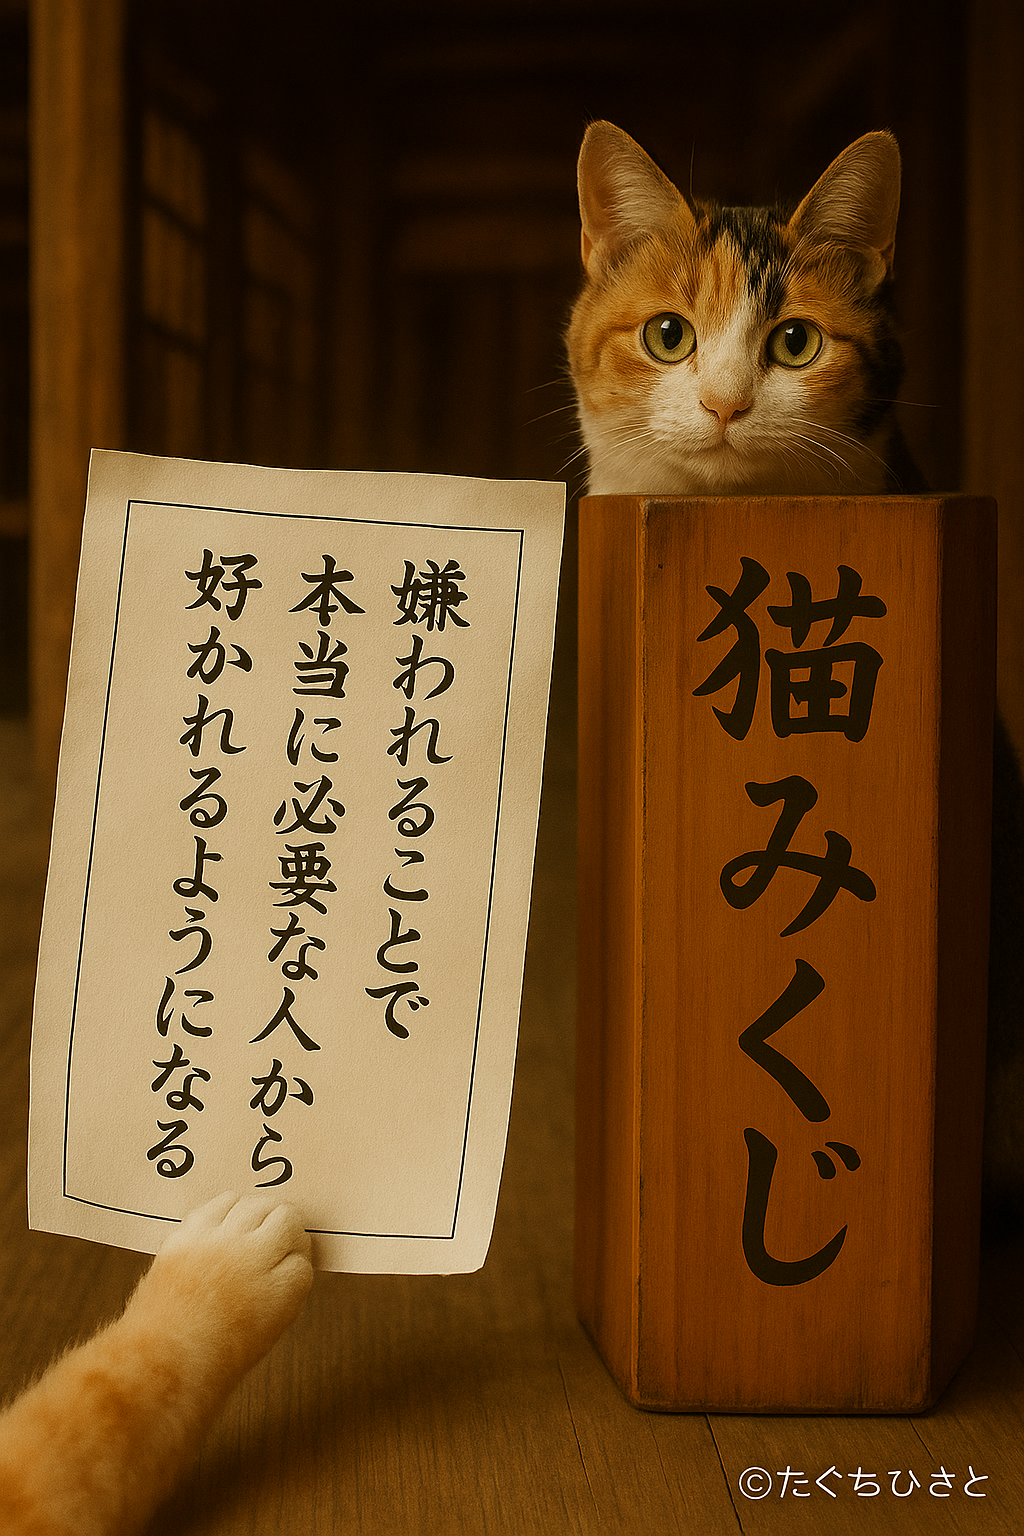 嫌われることで
本当に必要な人から
好かれるようになる
猫みくじ
©たぐちひさと